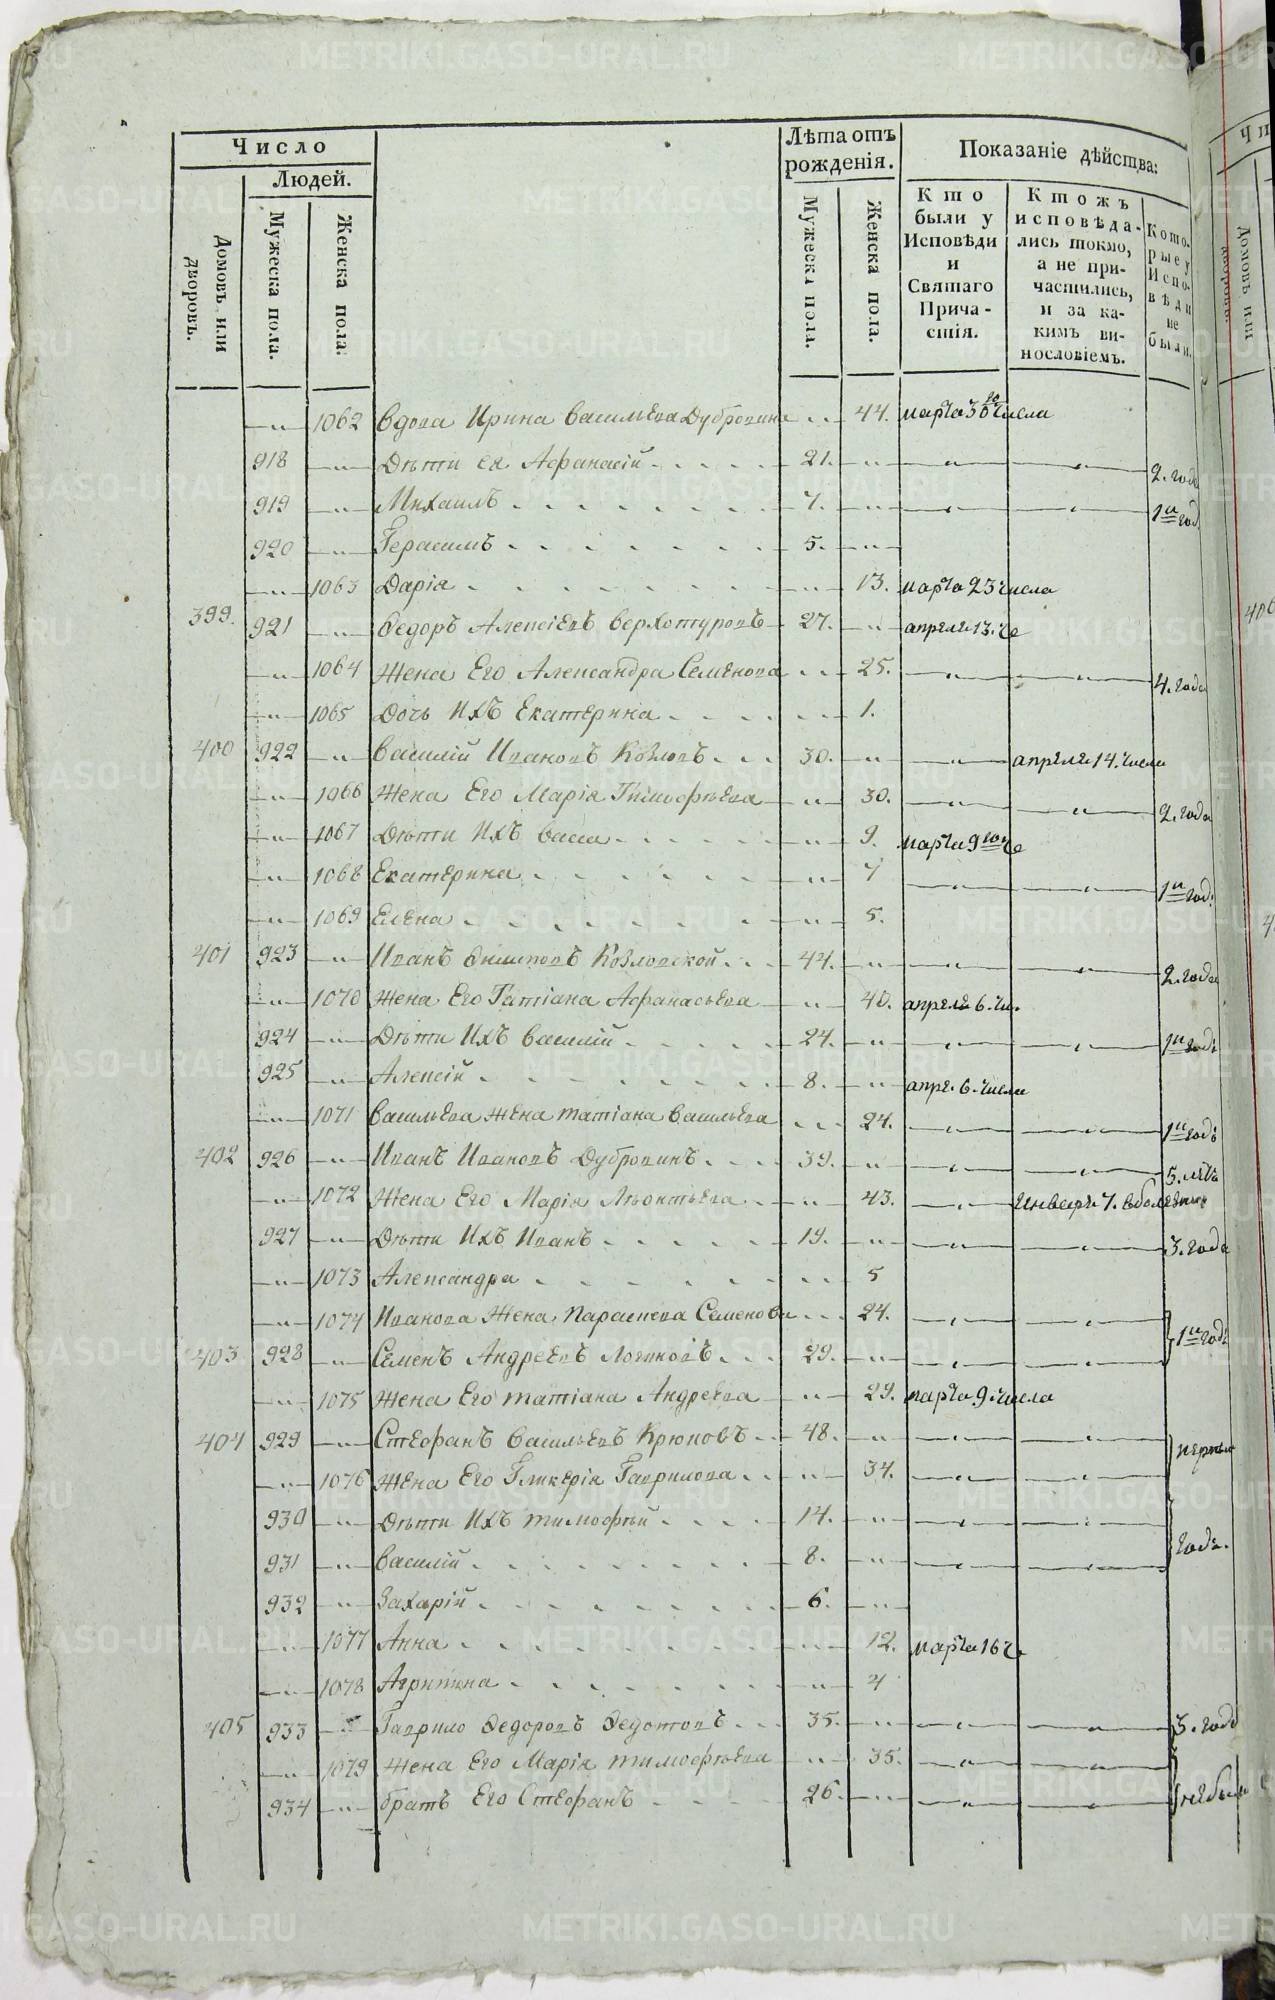 Число
Людей.
Домовъ или дворовъ.
Мужеска пола.
Женска пола.
Лѣта отъ рожденія.
Мужеска пола.
Женска пола.
Показаніе дѣйства:
Кто были у Исповѣди и Святаго Причастія.
Ктожъ исповѣдались токмо, а не причастились, и за какимъ винословіемъ.
Которые у Исповѣди не были.
1062 Вдова Ирина Васильева Дубровина 44. марта 30 числа
918 Дѣти ея Афанасій 21. 2. года
919 Михаилъ 7. 1й год
920 Герасимъ 5.
1063 Дарія 13. марта 23 числа
399. 921 Федоръ Алексіевъ Верхотуровъ 27. апреля 13. че
1064 Жена Его Александра Семенова 25. 4. года
1065 Дочь Ихъ Екатерина 1.
400 922 Василій Ивановъ Козловъ 30. апреля 14. числа
1066 Жена Его Марія Тимофѣева 30. 2. года
1067 Дѣти Ихъ Васса 9. марта 9го че
1068 Екатерина 7 1й год.
1069 Елена 5.
401 923 Иванъ Филиповъ Козловской 44. 2. года
1070 Жена Его Татіана Афанасьева 40. апреля 6. чи.
924 Дѣти Ихъ Василій 24. 1й годъ
925 Алексій 8. апре. 6. числа
1071 Васильева Жена татіана Васильева 24. 1й годъ
402 926 Иванъ Ивановъ Дубровинъ 39. 5. лѣтъ
1072 Жена Его Марія Лѣонтьева 43. Инваря 7. вболезни
927 Дѣти Ихъ Иванъ 19. 3. года
1073 Александра 5
1074 Иванова Жена Параскева Семенова 24. 1й годъ
403 928 Семенъ Андреевъ Логиновъ 29.
1075 Жена Его татіана Андреева 29. марта 9. числа
404 929 Стефанъ Васильевъ Крюковъ 48. первой
1076 Жена Его Гликерія Гаврилова 34.
930 Дѣти Ихъ тимофѣй 14. годъ.
931 Василій 8.
932 Захарій 6.
1077 Анна 12. марта 16 че
1078 Агрипина 4
405 933 Гаврило Федоровъ Федотовъ 35. 3. года
1079 Жена Его Марія тимофѣева 35. не были
934 братъ Его Стефанъ 26.
METRIKI.GASO-URAL.RU